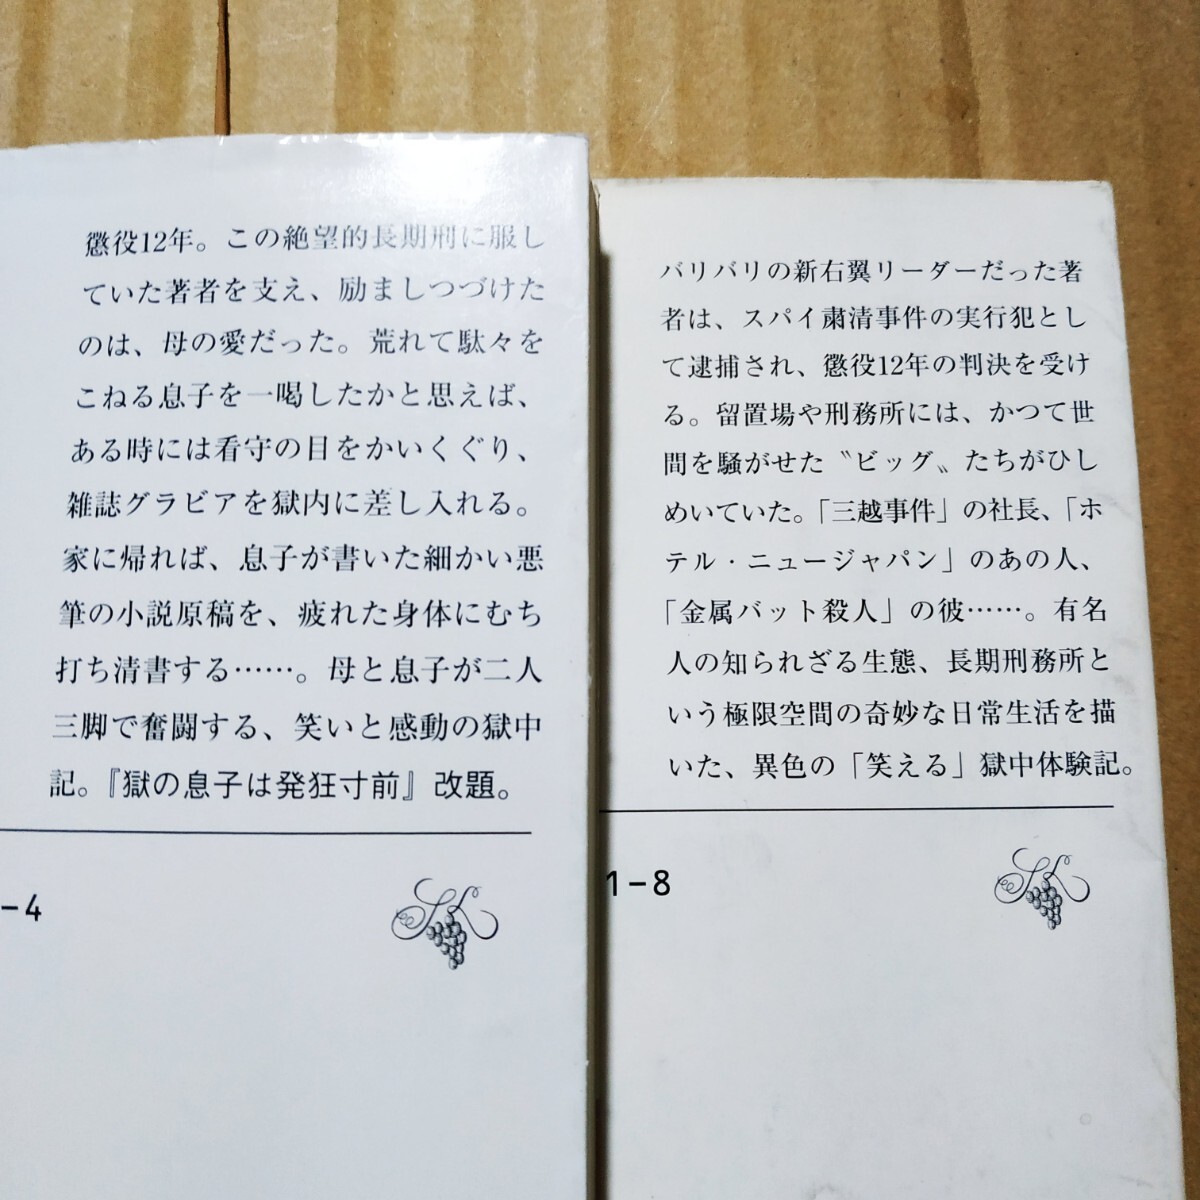 懲役12年。この絶望的長期刑に服し
ていた著者を支え、励ましつづけた
のは、母の愛だった。荒れて駄々を
こねる息子を一喝したかと思えば、
ある時には看守の目をかいくぐり、
雑誌グラビアを獄内に差し入れる。
家に帰れば、息子が書いた細かい悪
筆の小説原稿を、疲れた身体にむち
打ち清書する……。母と息子が二人
三脚で奮闘する、笑いと感動の獄中
記。『獄の息子は発狂寸前』改題。
-4
バリバリの新右翼リーダーだった著
者は、スパイ粛清事件の実行犯とし
て逮捕され、懲役12年の判決を受け
る。留置場や刑務所には、かつて世
間を騒がせた〝ビッグ〟たちがひし
めいていた。「三越事件」の社長、「ホ
テル・ニュージャパン」のあの人、
「金属バット殺人」の彼……。有名
人の知られざる生態、長期刑務所と
いう極限空間の奇妙な日常生活を描
いた、異色の「笑える」獄中体験記。
1-8